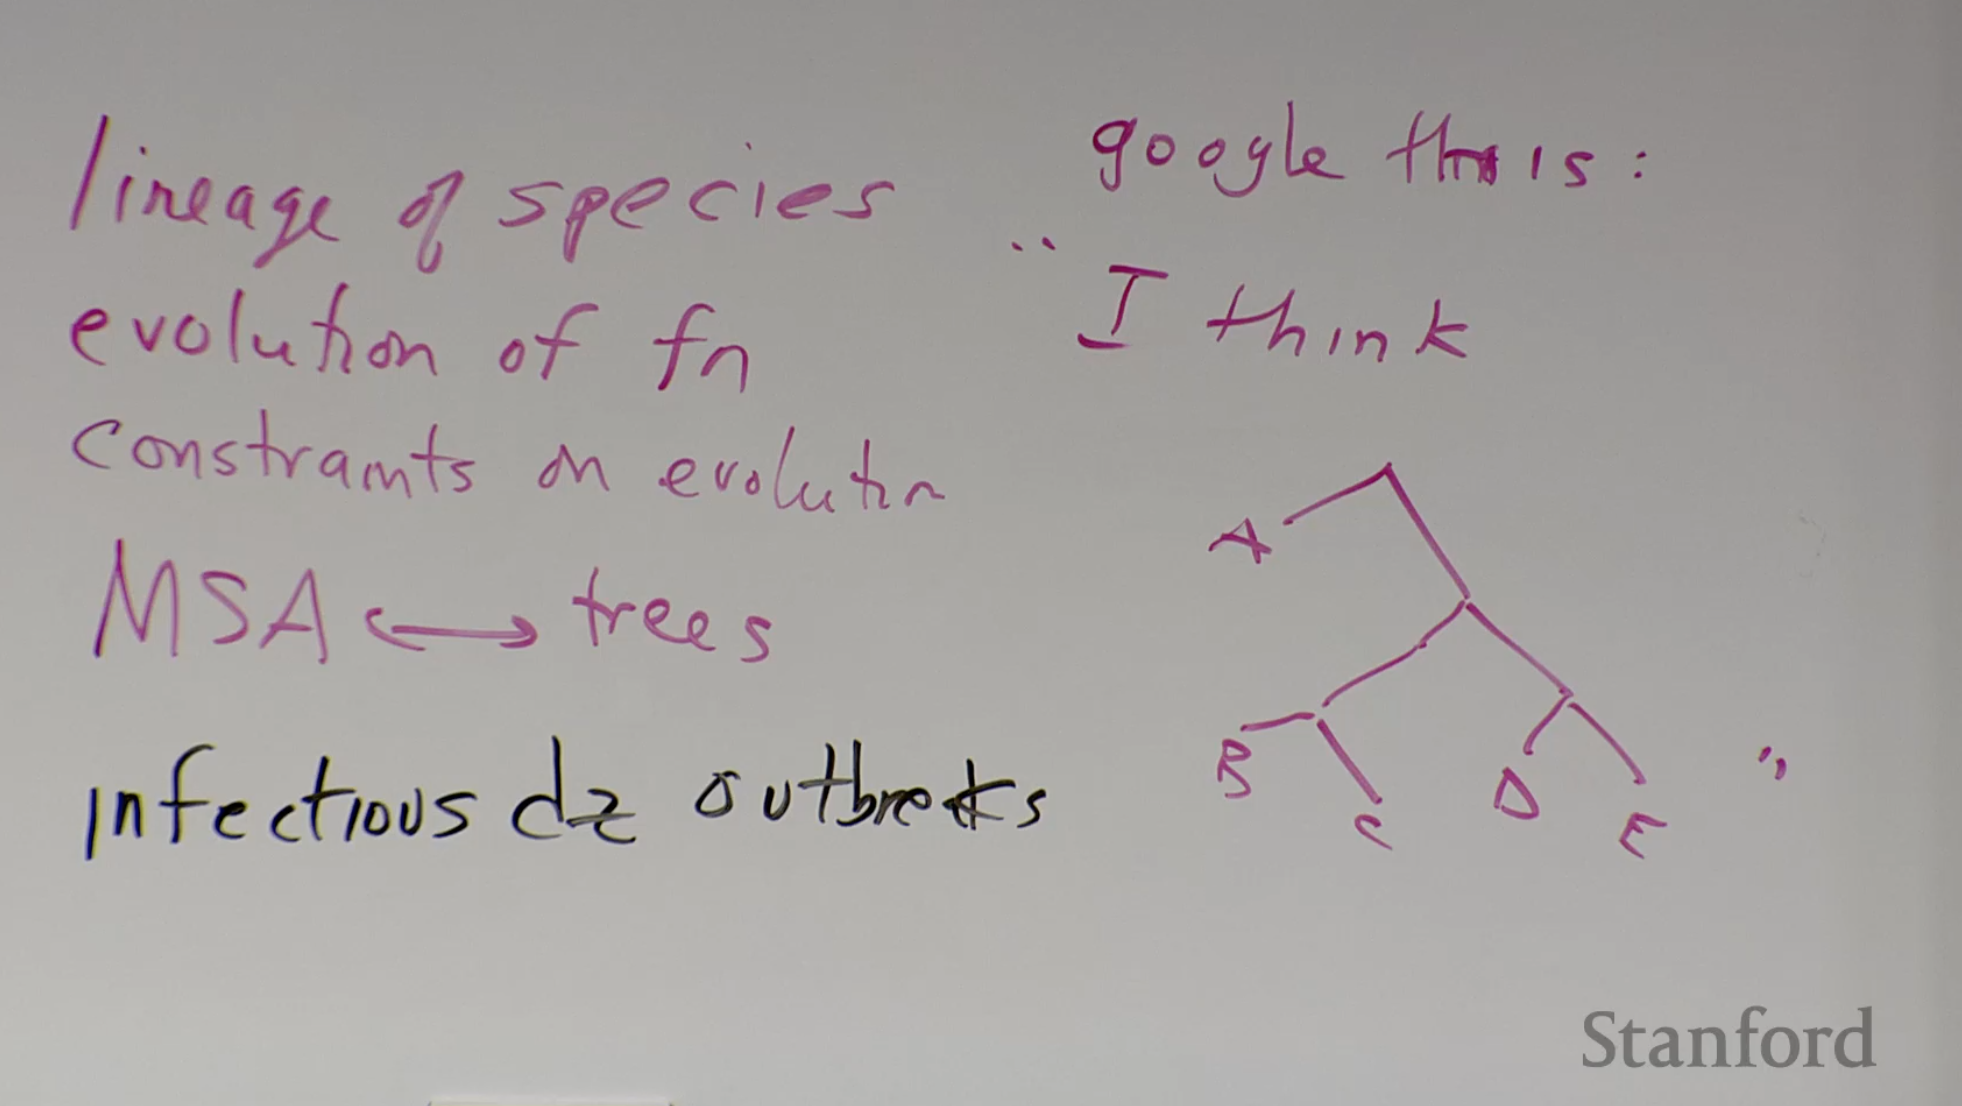 lineage of species
evolution of fn
constraints on evolution
MSA ↔ trees
infectious dz outbreaks
google this:
"I think
A
B
C
D
E
"
Stanford